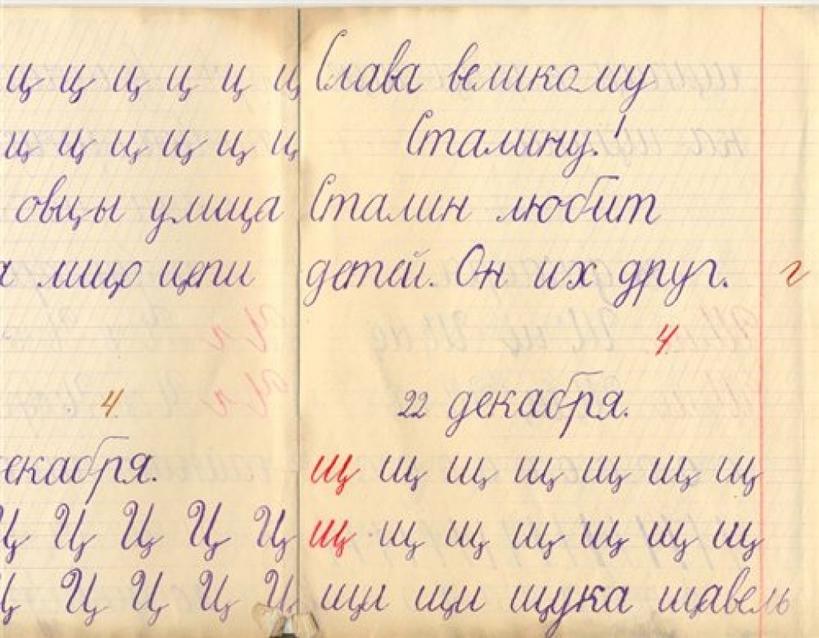 ц ц ц ц ц ц
ц ц ц ц ц ц
овцы улица
лицо цепи
4
екабря.
Ц Ц Ц Ц Ц
Ц Ц Ц Ц Ц
Слава великому
Сталину!
Сталин любит
детей. Он их друг. г
4
22 декабря.
щ щ щ щ щ щ щ
щ щ щ щ щ щ щ
щи щи щука щавель